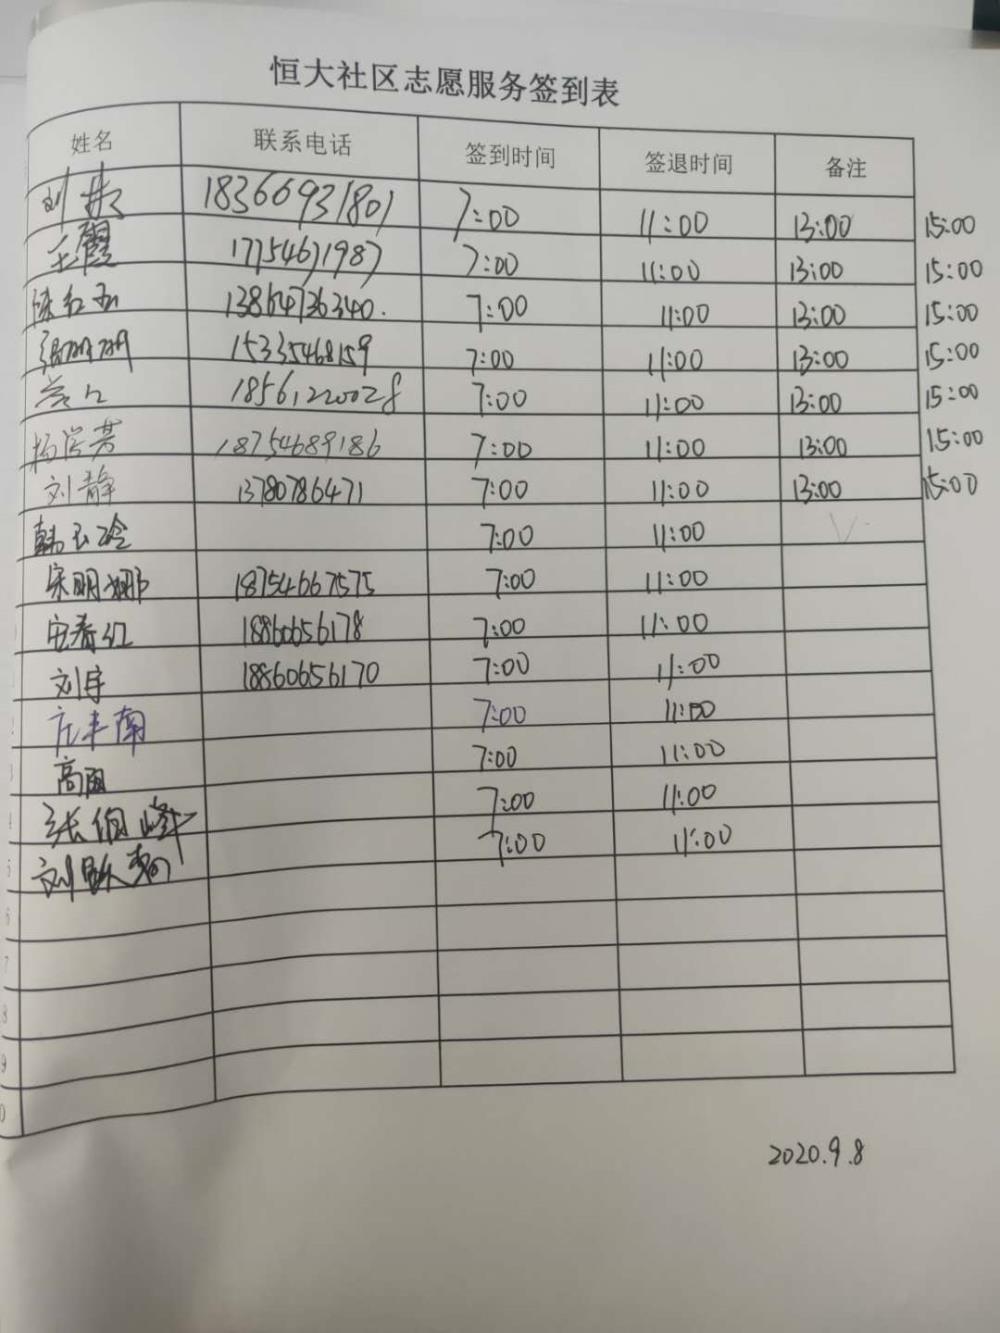 恒大社区志愿服务签到表
姓名 联系电话 签到时间 签退时间 备注
刘 18366931801 7:00 11:00 13:00 15:00
王霞 17754671987 7:00 11:00 13:00 15:00
13864736340. 7:00 11:00 13:00 15:00
15335468159 7:00 11:00 13:00 15:00
18561220028 7:00 11:00 13:00 15:00
杨 芳 18754689186 7:00 11:00 13:00 15:00
刘静 13780786471 7:00 11:00 13:00 15:00
韩玉玲 7:00 11:00
宋明娜 18754667575 7:00 11:00
安春红 18860656178 7:00 11:00
刘宇 18860656170 7:00 11:00
丰南 7:00 11:00
高丽 7:00 11:00
张 峰 7:00 11:00
刘 7:00 11:00
2020.9.8